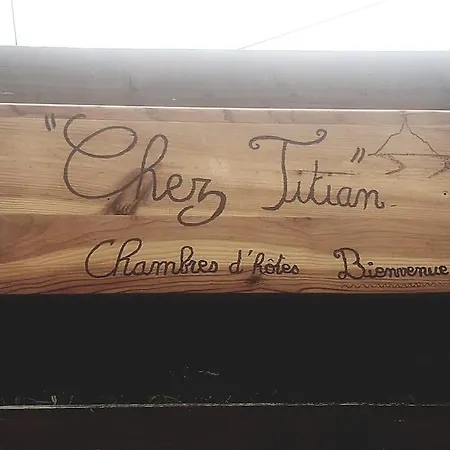 "Chez Titian"
Chambres d'hôtes Bienvenue